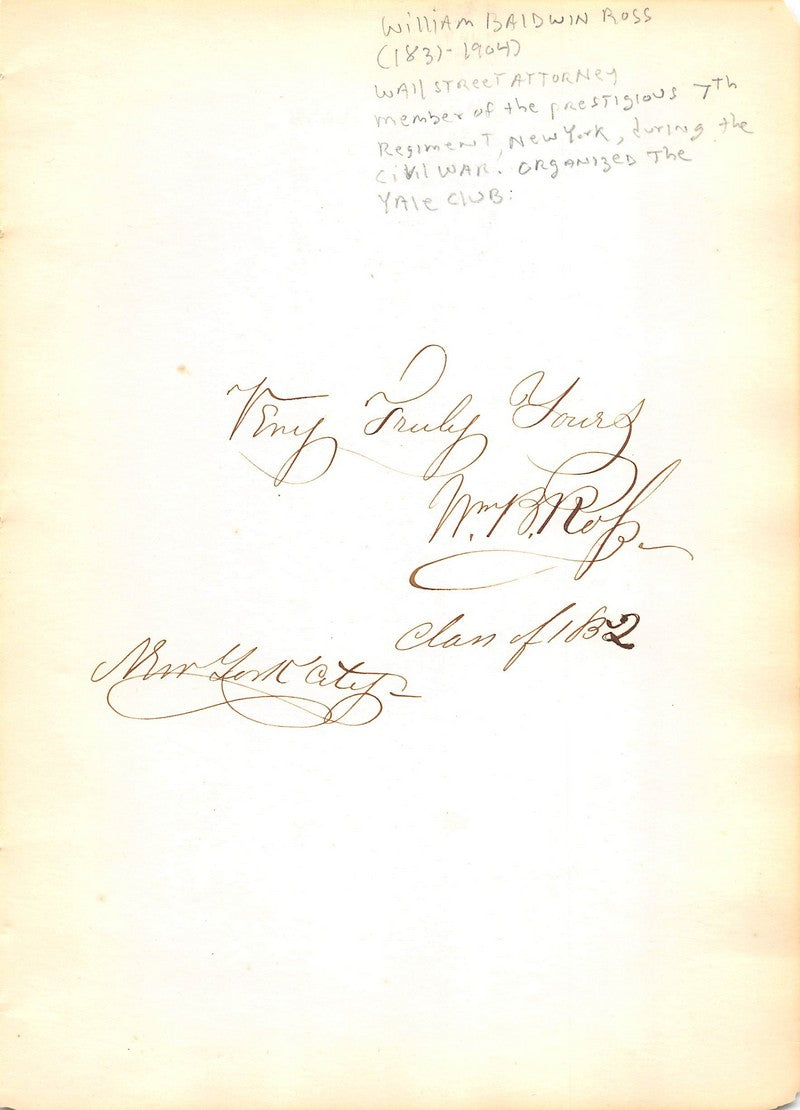 William BALDWIN ROSS
(1831-1904)
WAll STREET ATTORNEY
member of the prestigious 7th
Regiment, New York, during the
CIVIL WAR. ORGANIZED The
YALE CLUB.
Very Truly Yours
Wm. B. Ross.
Class of 1852
New York City